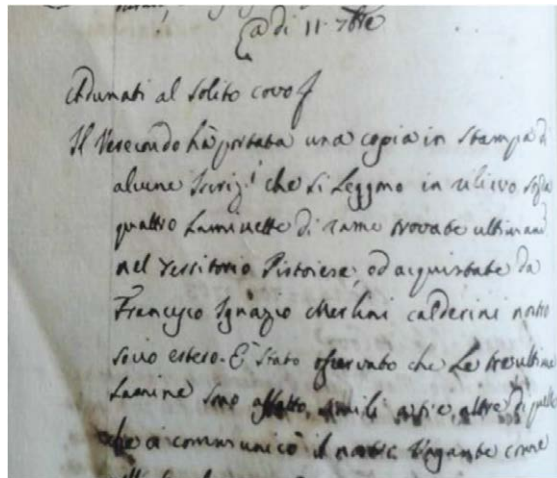 a di 11. 7bre
Adunati al solito covo
Il Verecondo hà portata una copia in stampa di
alcune Iscriz.i che si leggono in rilievo sopra
quattro Laminette di rame trovate ultimam
nel Territorio Pistoiese, ed acquistate da
Francesco Ignazio Merlini Calderini nostro
socio estero. È stato osservato che Le tre ultime
Lamine sono affatto simili
che ci communicò il nostro Vagante come